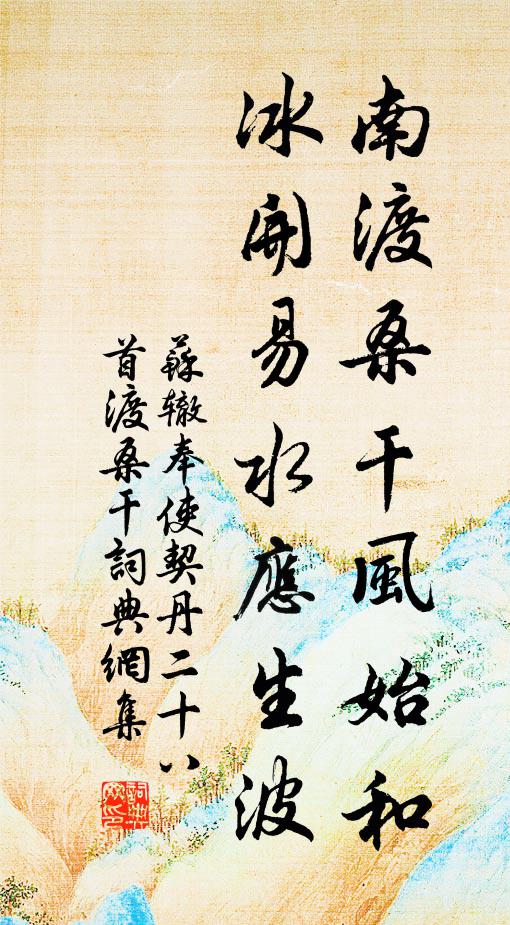 南渡桑干風始和
冰開易水應生波
蘇辙奉使契丹二十八
首渡桑干詞典網集